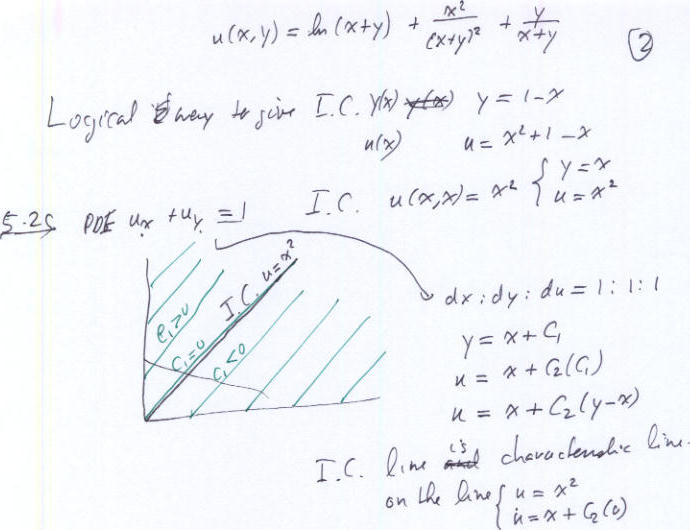 u(x,y) = ln(x+y) + x²/(x+y)² + y/x+y
②
Logical way to give I.C. y(x) y = 1-x
u(x) u = x²+1-x
I.C. u(x,x) = x² { y = x
u = x²
5.25 PDE uₓ + u_y = 1
I.C. u=x²
C₁>0
C₁=0
C₁<0
dx : dy : du = 1 : 1 : 1
y = x + C₁
u = x + C₂(C₁)
u = x + C₂(y-x)
I.C. line is characteristic line.
on the line { u = x²
u = x + C₂(0)